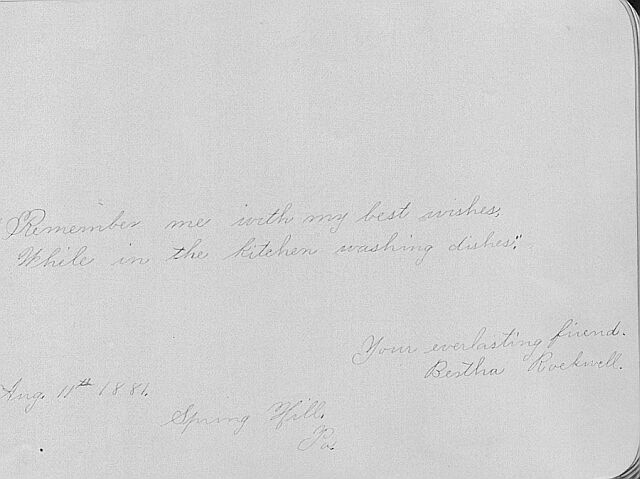 "Remember me with my best wishes,
While in the kitchen washing dishes."
Your everlasting friend.
Bertha Rockwell.
Aug. 11th 1881.
Spring Hill.
Pa.